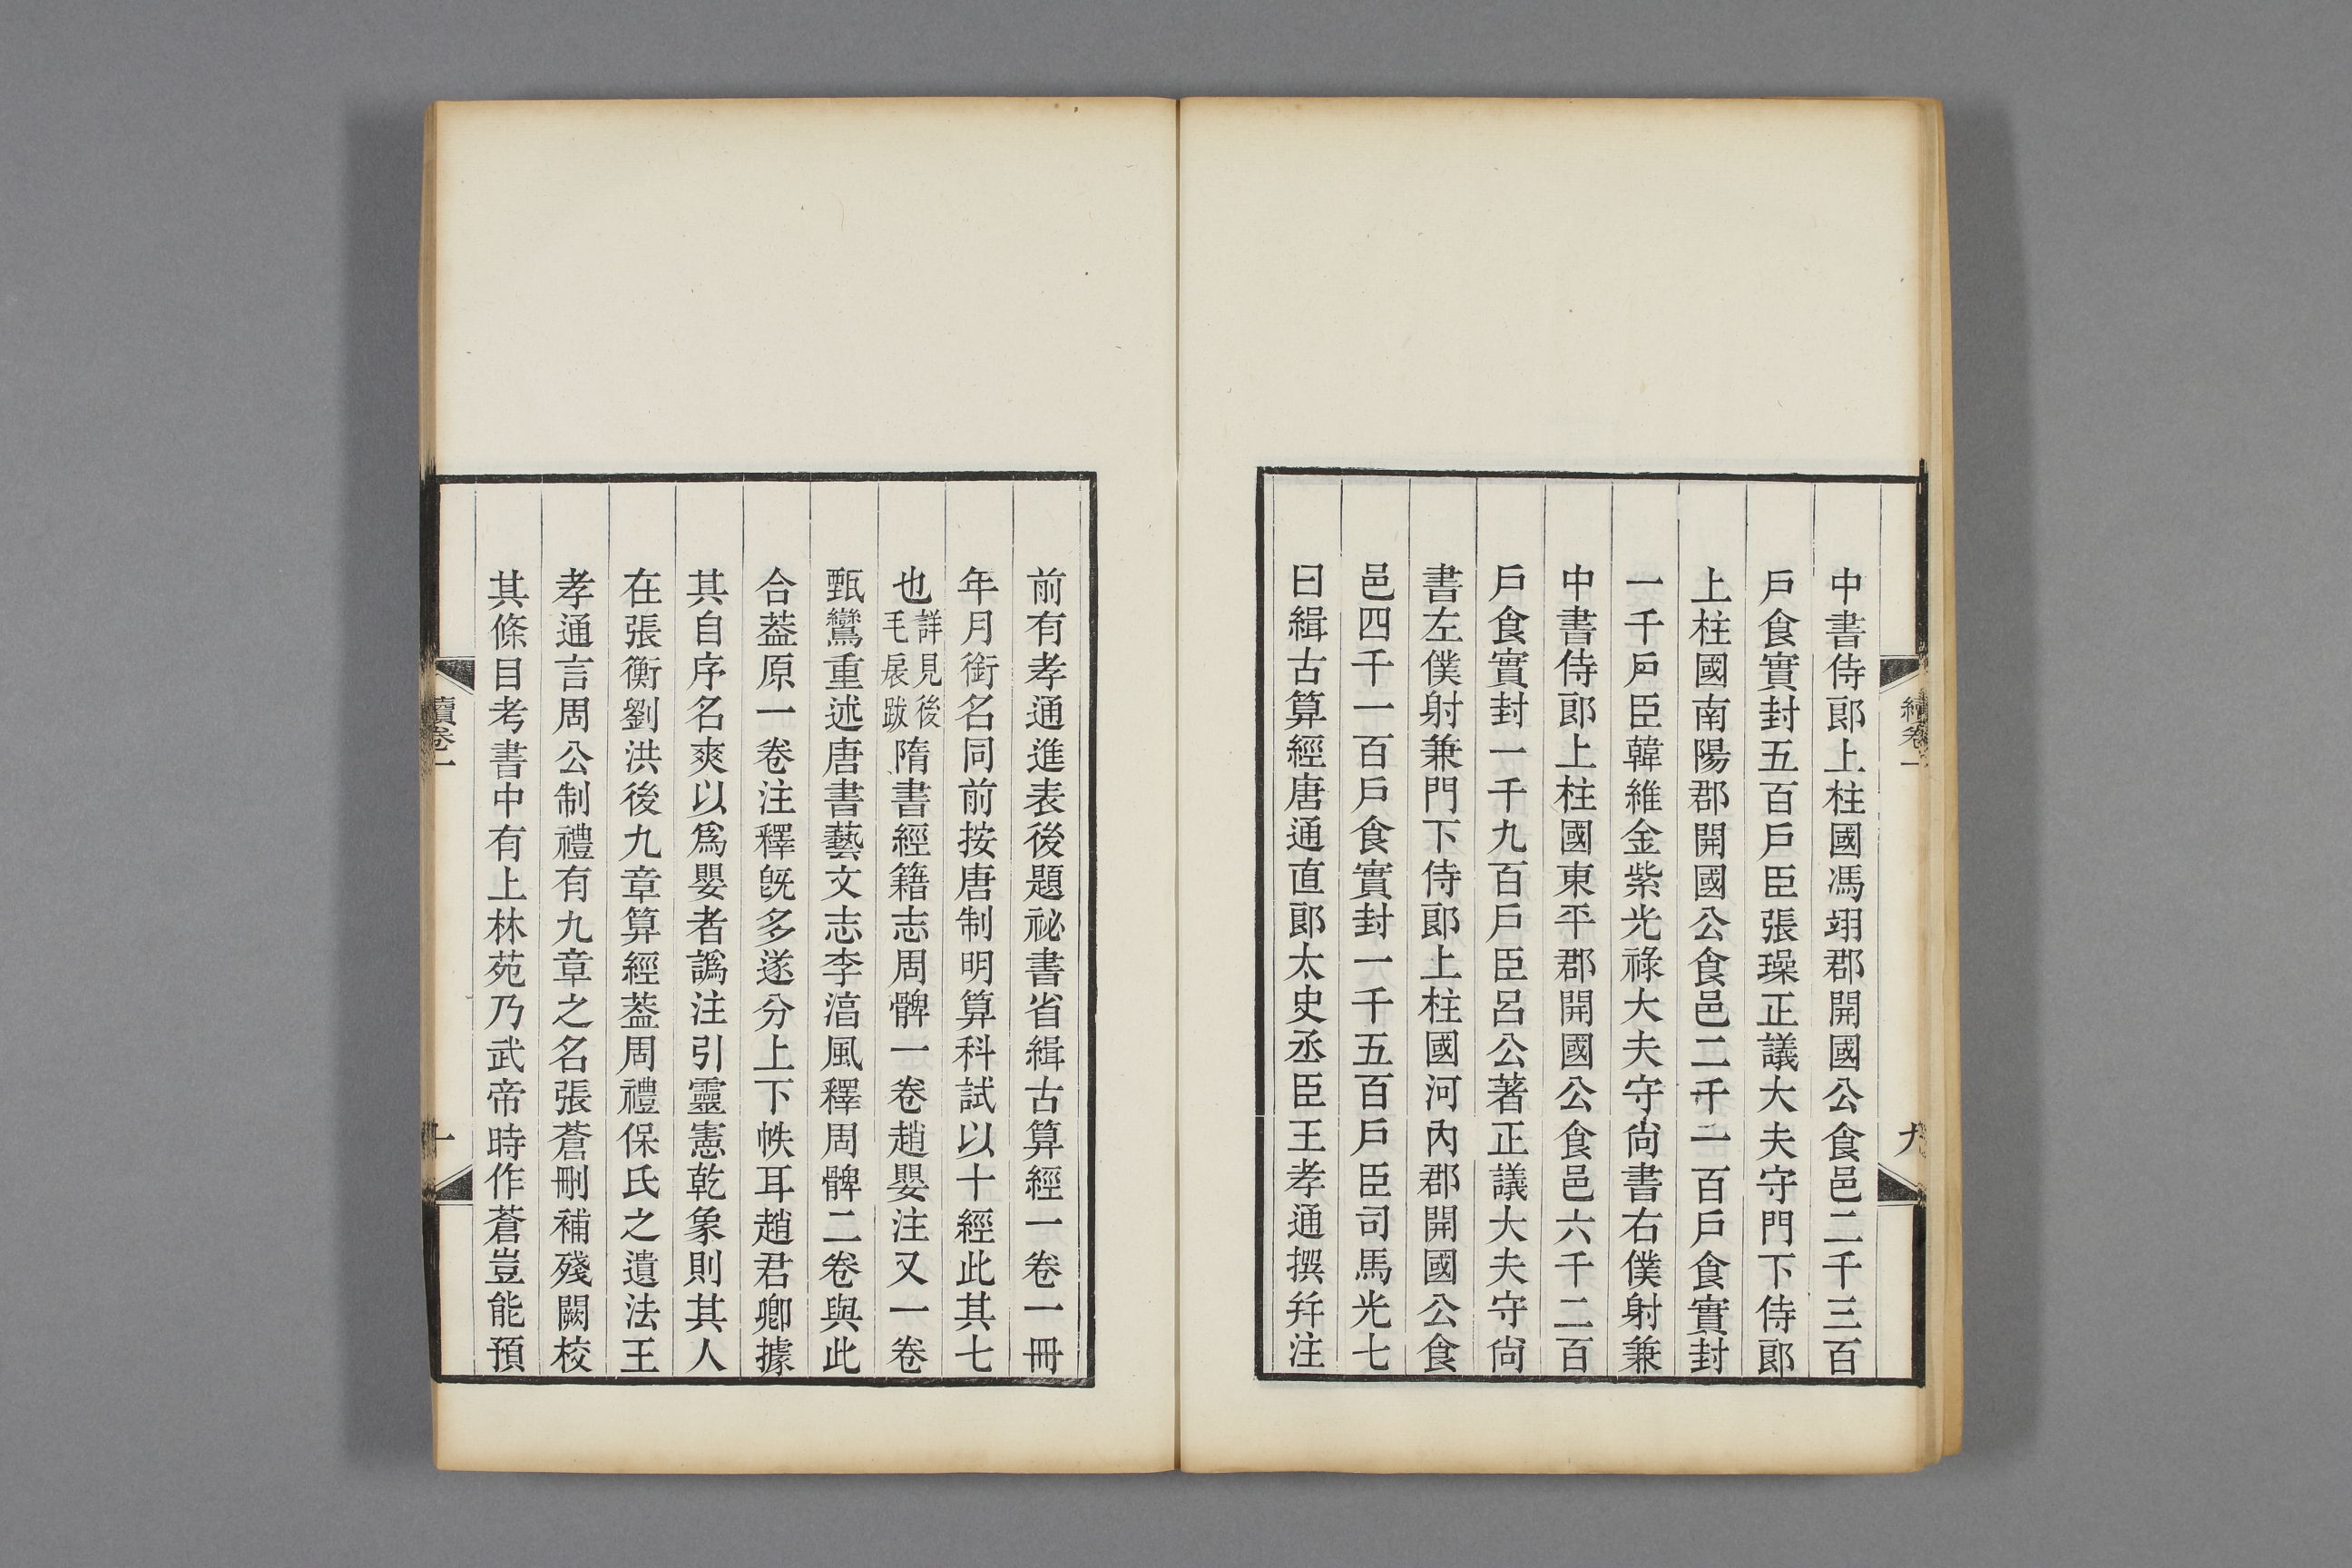 續卷一
九
中書侍郎上柱國馮翊郡開國公食邑二千三百
戶食實封五百戶臣張璪正議大夫守門下侍郎
上柱國南陽郡開國公食邑二千二百戶食實封
一千戶臣韓維金紫光祿大夫守尚書右僕射兼
中書侍郎上柱國東平郡開國公食邑六千二百
戶食實封一千九百戶臣呂公著正議大夫守尚
書左僕射兼門下侍郎上柱國河內郡開國公食
邑四千一百戶食實封一千五百戶臣司馬光七
曰緝古算經唐通直郎太史丞臣王孝通撰幷注
前有孝通進表後題祕書省緝古算經一卷一冊
年月銜名同前按唐制明算科試以十經此其七
也詳見後毛扆跋隋書經籍志周髀一卷趙嬰注又一卷
甄鸞重述唐書藝文志李湻風釋周髀二卷與此
合葢原一卷注釋旣多遂分上下帙耳趙君卿據
其自序名爽以爲嬰者譌注引靈憲乾象則其人
在張衡劉洪後九章算經葢周禮保氏之遺法王
孝通言周公制禮有九章之名張蒼刪補殘闕校
其條目考書中有上林苑乃武帝時作蒼豈能預
續卷一
十